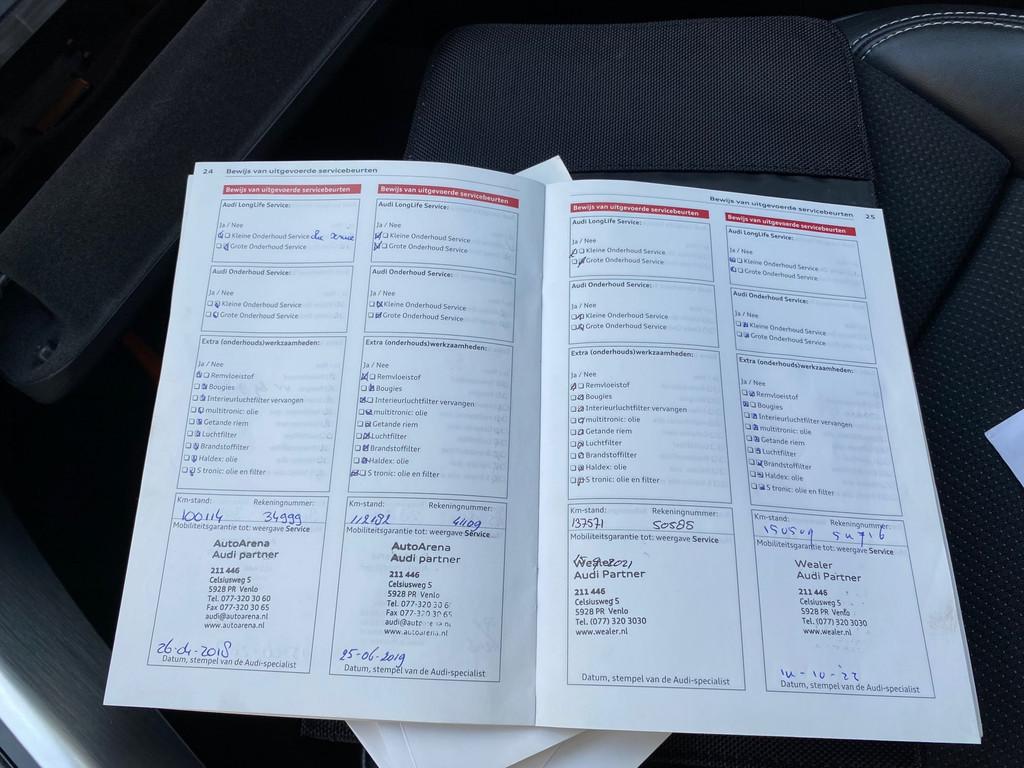 24 Bewijs van uitgevoerde servicebeurten
Bewijs van uitgevoerde servicebeurten
Audi LongLife Service:
Ja / Nee
Kleine Onderhoud Service
Grote Onderhoud Service
Audi Onderhoud Service:
Ja / Nee
Kleine Onderhoud Service
Grote Onderhoud Service
Extra (onderhouds)werkzaamheden:
Ja / Nee
Remvloeistof
Bougies
Interieurluchtfilter vervangen
multitronic: olie
Getande riem
Luchtfilter
Brandstoffilter
Haldex: olie
S tronic: olie en filter
Km-stand: Rekeningnummer:
100114 34999
Mobiliteitsgarantie tot: weergave Service
AutoArena
Audi partner
211 446
Celsiusweg 5
5928 PR Venlo
Tel. 077-320 30 60
Fax 077-320 30 65
audi@autoarena.nl
www.autoarena.nl
26-04-2018
Datum, stempel van de Audi-specialist
Bewijs van uitgevoerde servicebeurten
Audi LongLife Service:
Ja / Nee
Kleine Onderhoud Service
Grote Onderhoud Service
Audi Onderhoud Service:
Ja / Nee
Kleine Onderhoud Service
Grote Onderhoud Service
Extra (onderhouds)werkzaamheden:
Ja / Nee
Remvloeistof
Bougies
Interieurluchtfilter vervangen
multitronic: olie
Getande riem
Luchtfilter
Brandstoffilter
Haldex: olie
S tronic: olie en filter
Km-stand: Rekeningnummer:
112182 41109
Mobiliteitsgarantie tot: weergave Service
AutoArena
Audi partner
211 446
Celsiusweg 5
5928 PR Venlo
Tel. 077-320 30 6
Fax 077-320 30 65
www.autoarena.nl
25-06-2019
Datum, stempel van de Audi-specialist
Bewijs van uitgevoerde servicebeurten 25
Bewijs van uitgevoerde servicebeurten
Audi LongLife Service:
Ja / Nee
Kleine Onderhoud Service
Grote Onderhoud Service
Audi Onderhoud Service:
Ja / Nee
Kleine Onderhoud Service
Grote Onderhoud Service
Extra (onderhouds)werkzaamheden:
Ja / Nee
Remvloeistof
Bougies
Interieurluchtfilter vervangen
multitronic: olie
Getande riem
Luchtfilter
Brandstoffilter
Haldex: olie
S tronic: olie en filter
Km-stand: Rekeningnummer:
137571 50585
Mobiliteitsgarantie tot: weergave Service
Wealer
Audi Partner
211 446
Celsiusweg 5
5928 PR Venlo
Tel. (077) 320 3030
www.wealer.nl
Datum, stempel van de Audi-specialist
Bewijs van uitgevoerde servicebeurten
Audi LongLife Service:
Ja / Nee
Kleine Onderhoud Service
Grote Onderhoud Service
Audi Onderhoud Service:
Ja / Nee
Kleine Onderhoud Service
Grote Onderhoud Service
Extra (onderhouds)werkzaamheden:
Ja / Nee
Remvloeistof
Bougies
Interieurluchtfilter vervangen
multitronic: olie
Getande riem
Luchtfilter
Brandstoffilter
Haldex: olie
S tronic: olie en filter
Km-stand: Rekeningnummer:
Mobiliteitsgarantie tot: weergave Service
Wealer
Audi Partner
211 446
Celsiusweg 5
5928 PR Venlo
Tel. (077) 320 3030
www.wealer.nl
Datum, stempel van de Audi-specialist